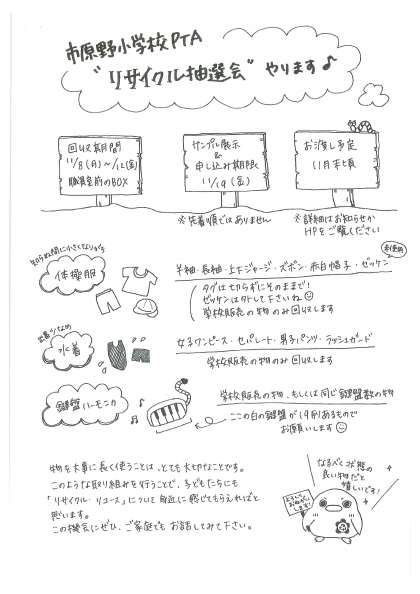 市原野小学校PTA
"リサイクル抽選会" やります♪
回収期間
11/8(月)〜/12(金)
職員室前のBOX
サンプル展示
&
申し込み期限
11/19(金)
お渡し予定
11月末頃
※先着順ではありません
※詳細はお知らせか
HPをご覧ください
知らぬ間に小さくてよりがち
体操服
未使用
半袖・長袖・上下ジャージ・ズボン・赤白帽子・ゼッケン
タグは切らずにそのままで!
ゼッケンは外して下さいね
学校販売の物のみ回収します
出番少なめ
水着
女子ワンピース・セパレート・男子パンツ・ラッシュガード
学校販売の物のみ回収します
鍵盤ハーモニカ
学校販売の物、もしくは同じ鍵盤数の物
ここの白の鍵盤が19個あるもので
お願いします
物を大事に長く使うことは、とても大切なことです。
このような取り組みを行うことで、子どもたちにも
「リサイクル・リユース」について身近に感じてもらえればと
思います。
この機会にぜひ、ご家庭でもお話してみて下さい。
なるべく状態の
良い物だと
嬉しいです!
よろしく
おねがい
します!